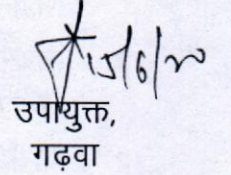 15/6/20
उपायुक्त,
गढ़वा